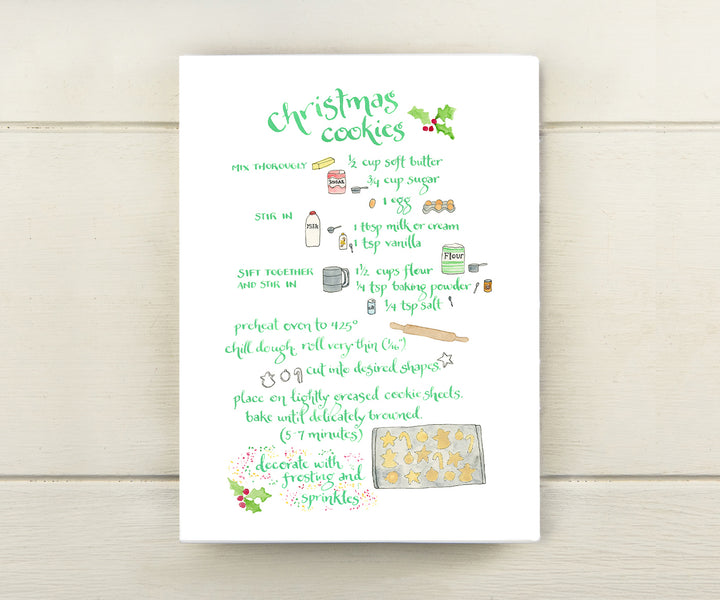 christmas
cookies
MIX THOROUGLY ½ cup soft butter
SUGAR ¾ cup sugar
1 egg
STIR IN Milk 1 tbsp milk or cream
1 tsp vanilla
Flour
SIFT TOGETHER 1½ cups flour
AND STIR IN ¼ tsp baking powder
¼ tsp salt
preheat oven to 425°
chill dough, roll very thin (1/16")
cut into desired shapes.
place on lightly greased cookie sheets.
bake until delicately browned.
(5-7 minutes)
decorate with
frosting and
sprinkles